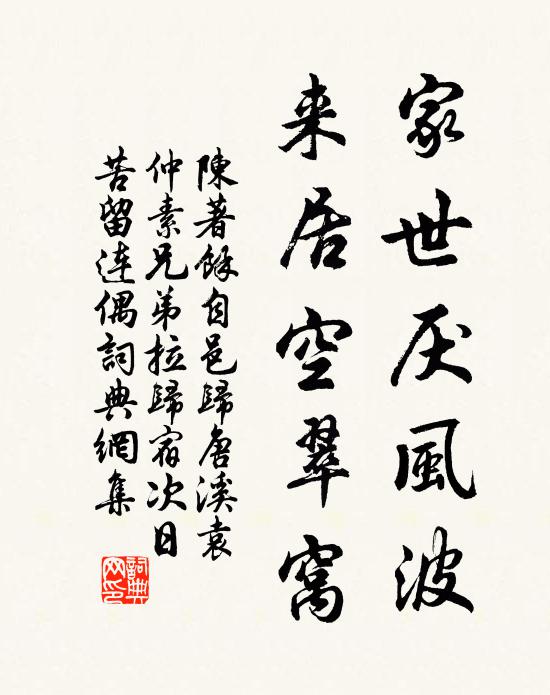 家世厌風波
来居空翠窩
陳著餘自邑歸唐溪袁
仲素兄弟拉歸宿次日
苦留連偶詞典網集
詞典
网印